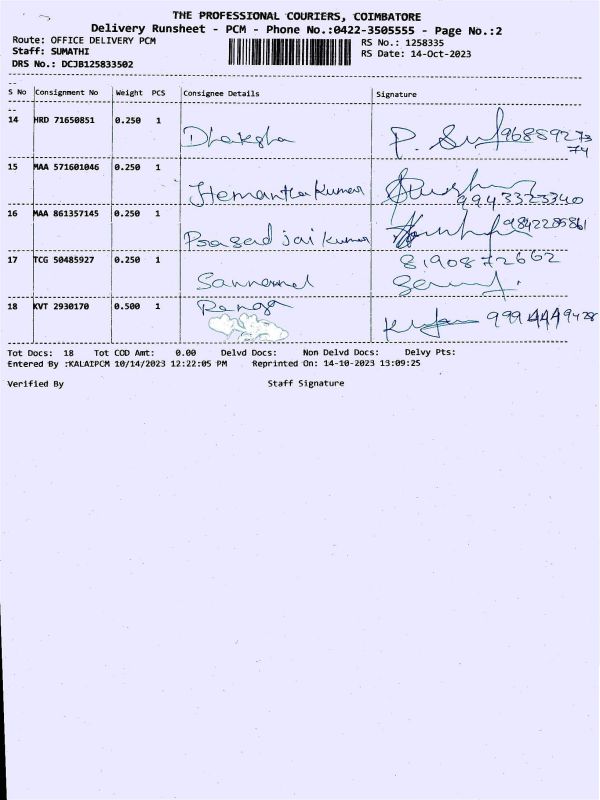 THE PROFESSIONAL COURIERS, COIMBATORE
Delivery Runsheet - PCM - Phone No.:0422-3505555 - Page No.:2
Route: OFFICE DELIVERY PCM RS No.: 1258335
Staff: SUMATHI RS Date: 14-Oct-2023
DRS No.: DCJB125833502
S No Consignment No Weight PCS Consignee Details Signature
14 HRD 71650851 0.250 1 Dhaksha
15 MAA 571601046 0.250 1 Hemanthakumar 9943323340
16 MAA 861357145 0.250 1 Prasad jai kumar
17 TCG 50485927 0.250 1 8190872662
18 KVT 2930170 0.500 1 Ranga
Tot Docs: 18 Tot COD Amt: 0.00 Delvd Docs: Non Delvd Docs: Delvy Pts:
Entered By :KALAIPCM 10/14/2023 12:22:05 PM Reprinted On: 14-10-2023 13:09:25
Verified By Staff Signature